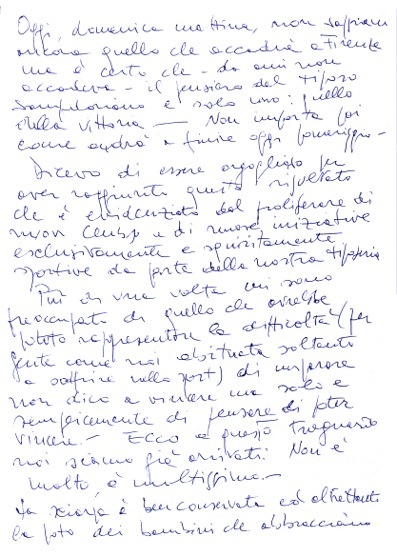 Oggi, domenica mattina, non sappiamo
ancora quello che accadrà a Firenze
ma è certo che - da anni non
accadeva - il pensiero del tifoso
sampdoriano è solo uno: quello
della vittoria — Non importa poi
come andrà a finire oggi pomeriggio -
Dicevo di essere orgoglioso per
aver raggiunto questo risultato
che è evidenziato dal proliferare di
nuovi Clubs e di nuove iniziative
esclusivamente e squisitamente
sportive da parte della nostra tifoseria
Più di una volta mi sono
preoccupato di quello che avrebbe
potuto rappresentare la difficoltà (per
gente come noi abituata soltanto
a soffrire nello sport) di imparare
non dico a vincere ma solo e
semplicemente di pensare di poter
vincere. - Ecco a questo traguardo
noi siamo già arrivati! Non è
molto, è moltissimo. -
La sciarpa è ben conservata ed altrettanto
la foto dei bambini che abbracciano